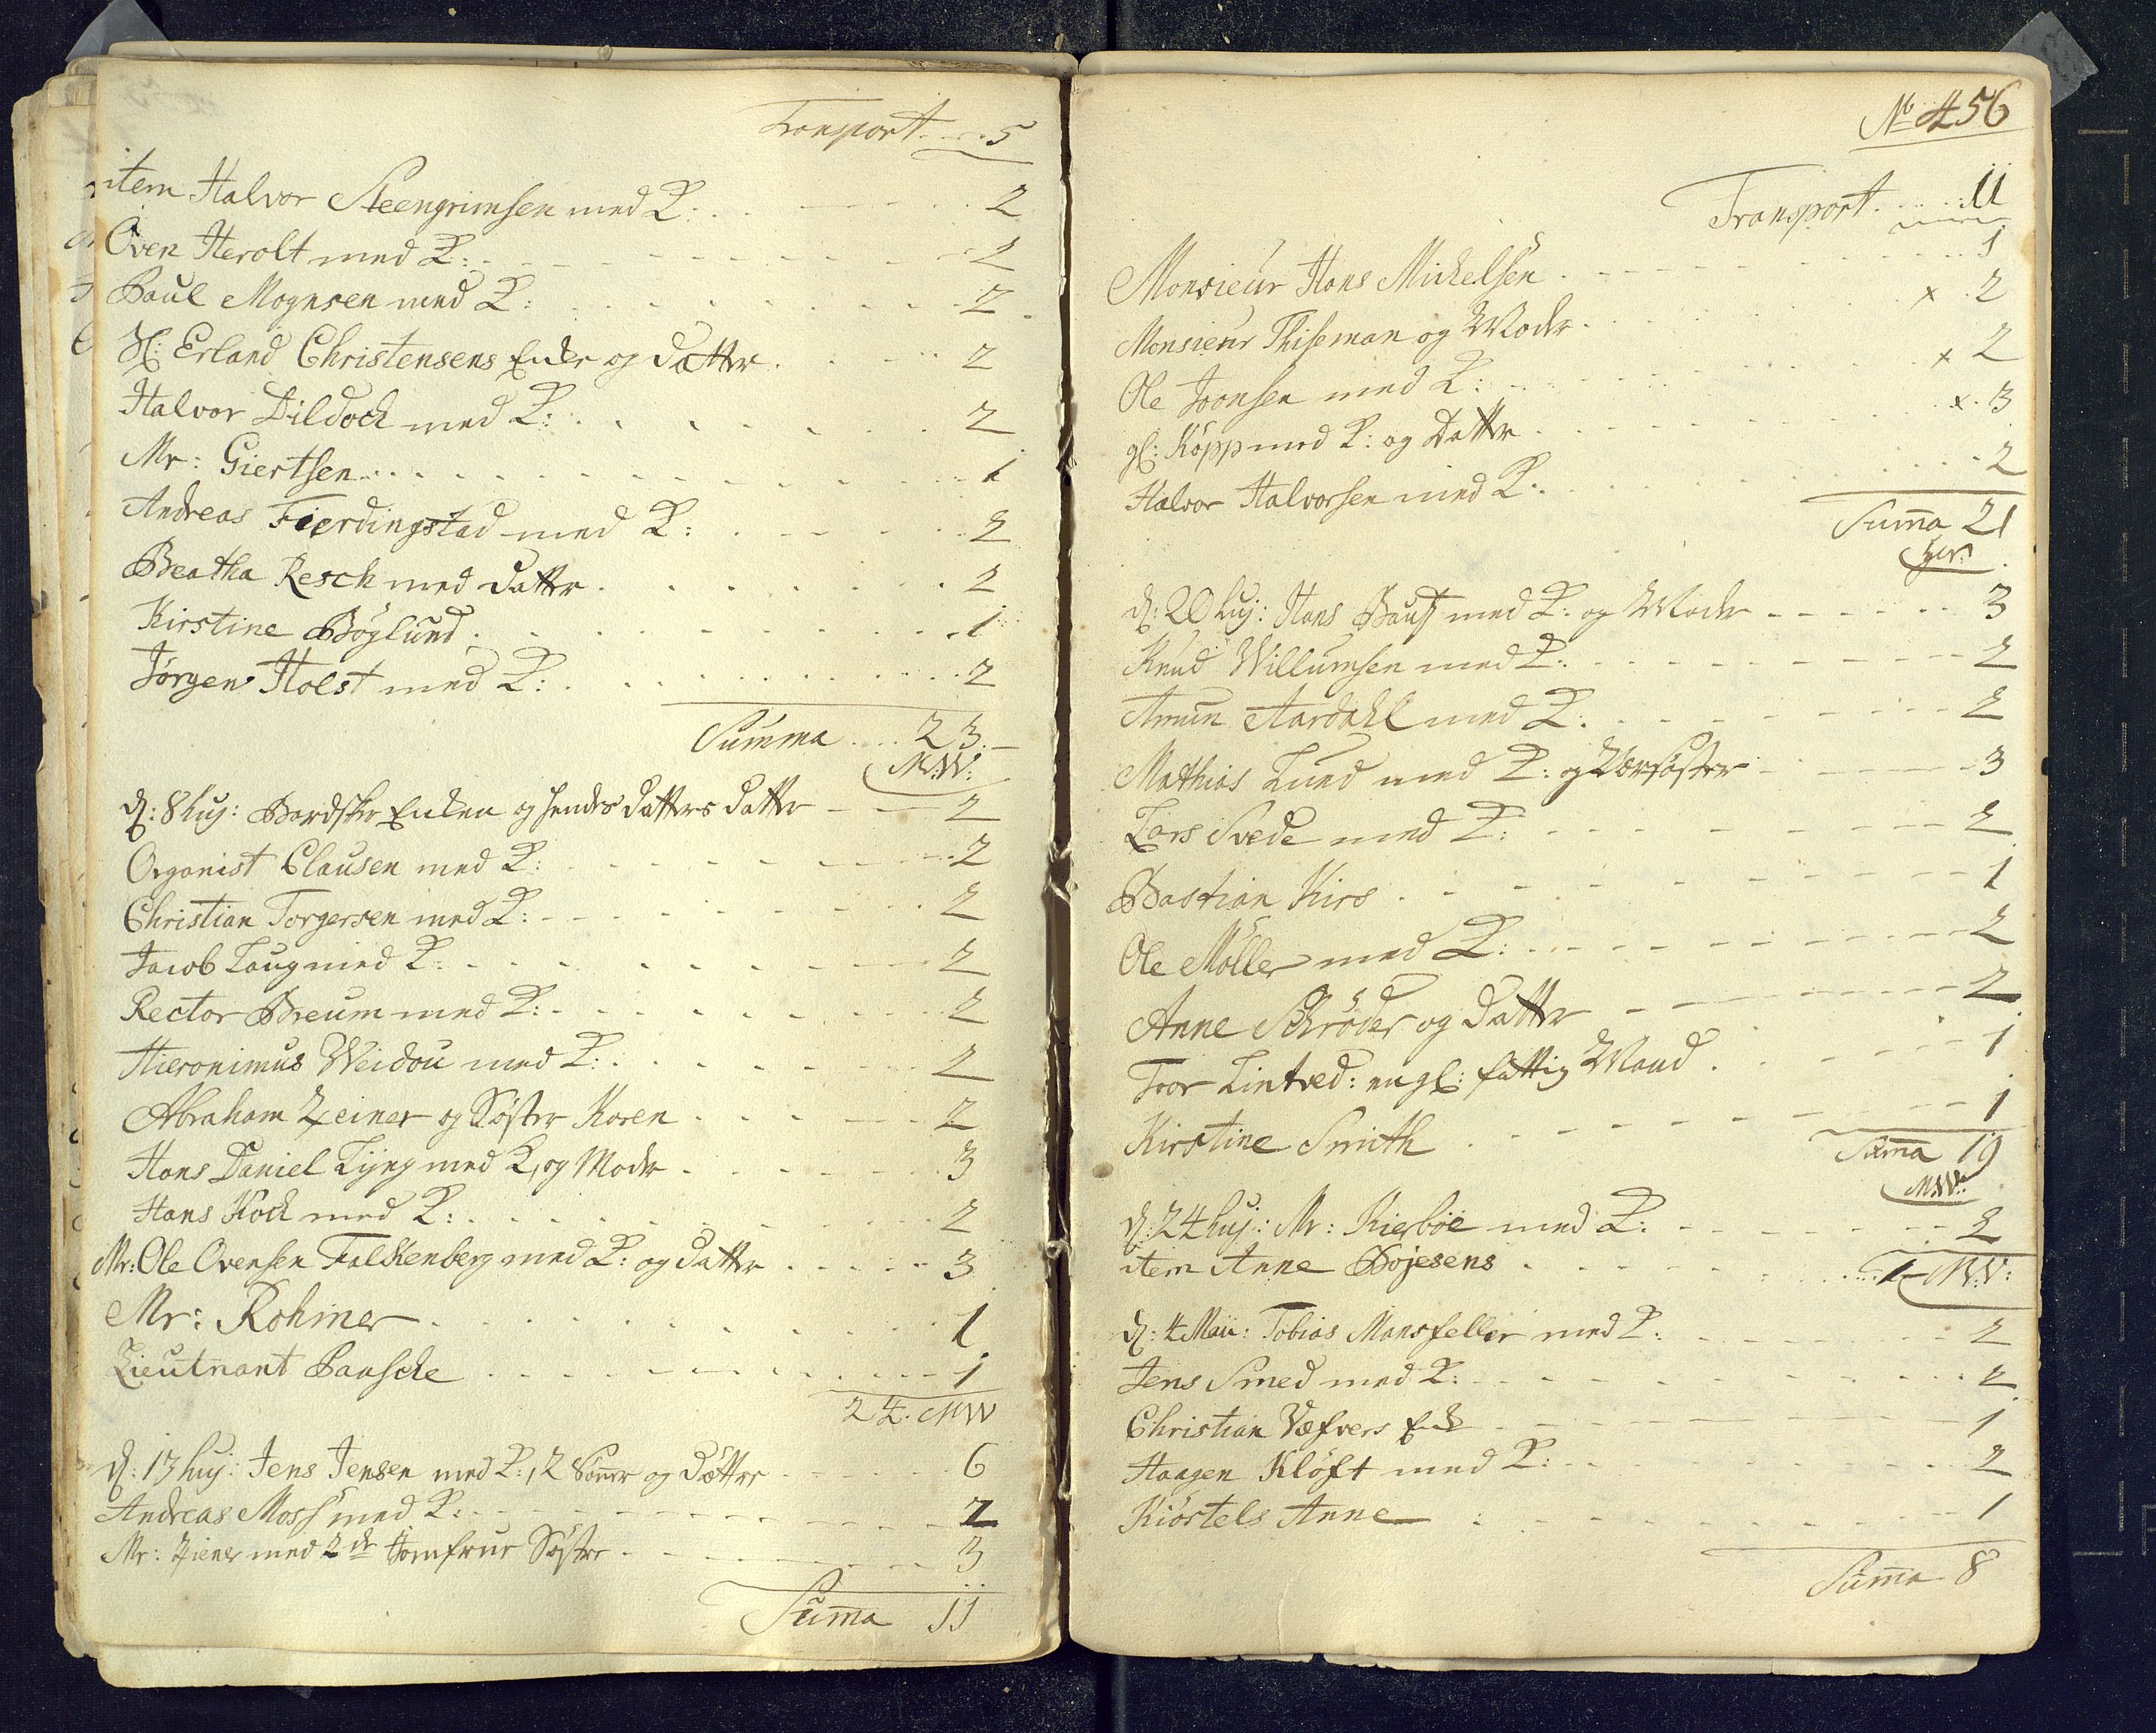 Transport 5
item Halvor Steengrimsen med K: 2
Oven Herolt med K: 2
Poul Mognsen med K: 2
Sl: Erland Christensens Enke og Datter 2
Halvor Dildock med K: 2
Mr: Giertsen 1
Andreas Fierdingstad med K: 2
Beatha Resch med Datter 2
Kirstine Böglund 1
Jörgen Holst med K: 2
Summa 23
M:W:
d: 8 huj: Bardsker Enken og hendes Datters Datter 2
Organist Clausen med K: 2
Christian Torgersen med K: 2
Jacob Laug med K: 2
Rector Breum med K: 2
Hieronimus Weidou med K: 2
Abraham Zeiner og Söster Karen 2
Hans Daniel Lyng med K, og Moder 3
Hans Kock med K: 2
Mr: Ole Ovensen Falkenberg med K: og Datter 3
Mr: Rohmer 1
Lieutnant Paasche 1
24. MW
d: 13 huj: Jens Jensen med K:, 2 Sönner og Dötter 6
Andreas Moss med K: 2
Mr: Ziener med 2de Jomfrue Söstre 3
Summa 11
No 456
Transport 11
Monsieur Hans Mickelsen 1
Monsieur Thiseman og Moder x 2
Ole Joonsen med K: x 2
gl: Köpp med K: og Datter x 3
Halvor Halvorsen med K: 2
Suma 21
d: 20 huj: Hans Bauss med K: og Moder 3
Knud Willumsen med K: 2
Amun Aardahl med K: 2
Mathias Lund med K: og Værsöster 3
Lars Svede med K: 2
Bastian Kirs 1
Ole Möller med K: 2
Anne Schröder og Datter 2
Toor Lintved: en gl: fattig Mand 1
Kirstine Smith 1
Suma 19
M:W:
d: 24 huj: Mr: Kierböe med K: 2
item Anne Bojesens 1 M:W:
d: 4 Maii: Tobias Mansfeller med K: 2
Jens Smed med K: 2
Christian Væfvers Enke 1
Haagen Klöft med K: 2
Kiörstels Anne 1
Suma 8